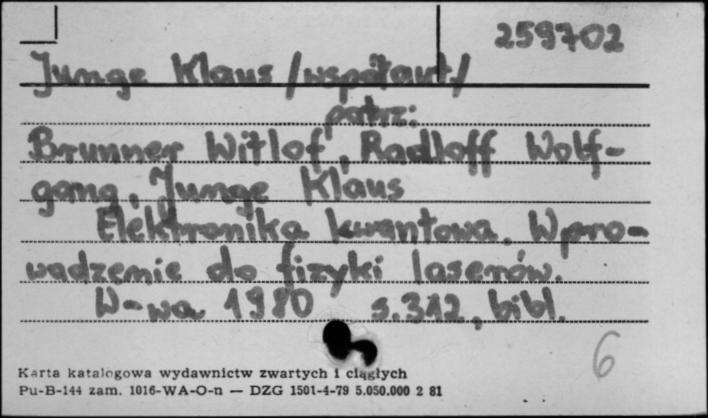 259702
Junge Klaus /współaut/
patrz:
Brunner Witlof, Radloff Wolf-
gang, Junge Klaus
Elektronika kwantowa. Wpro-
wadzenie do fizyki laserów.
W-wa 1980 s.312, bibl.
6
Karta katalogowa wydawnictw zwartych i ciągłych
Pu-B-144 zam. 1016-WA-O-n — DZG 1501-4-79 5.050.000 2 81